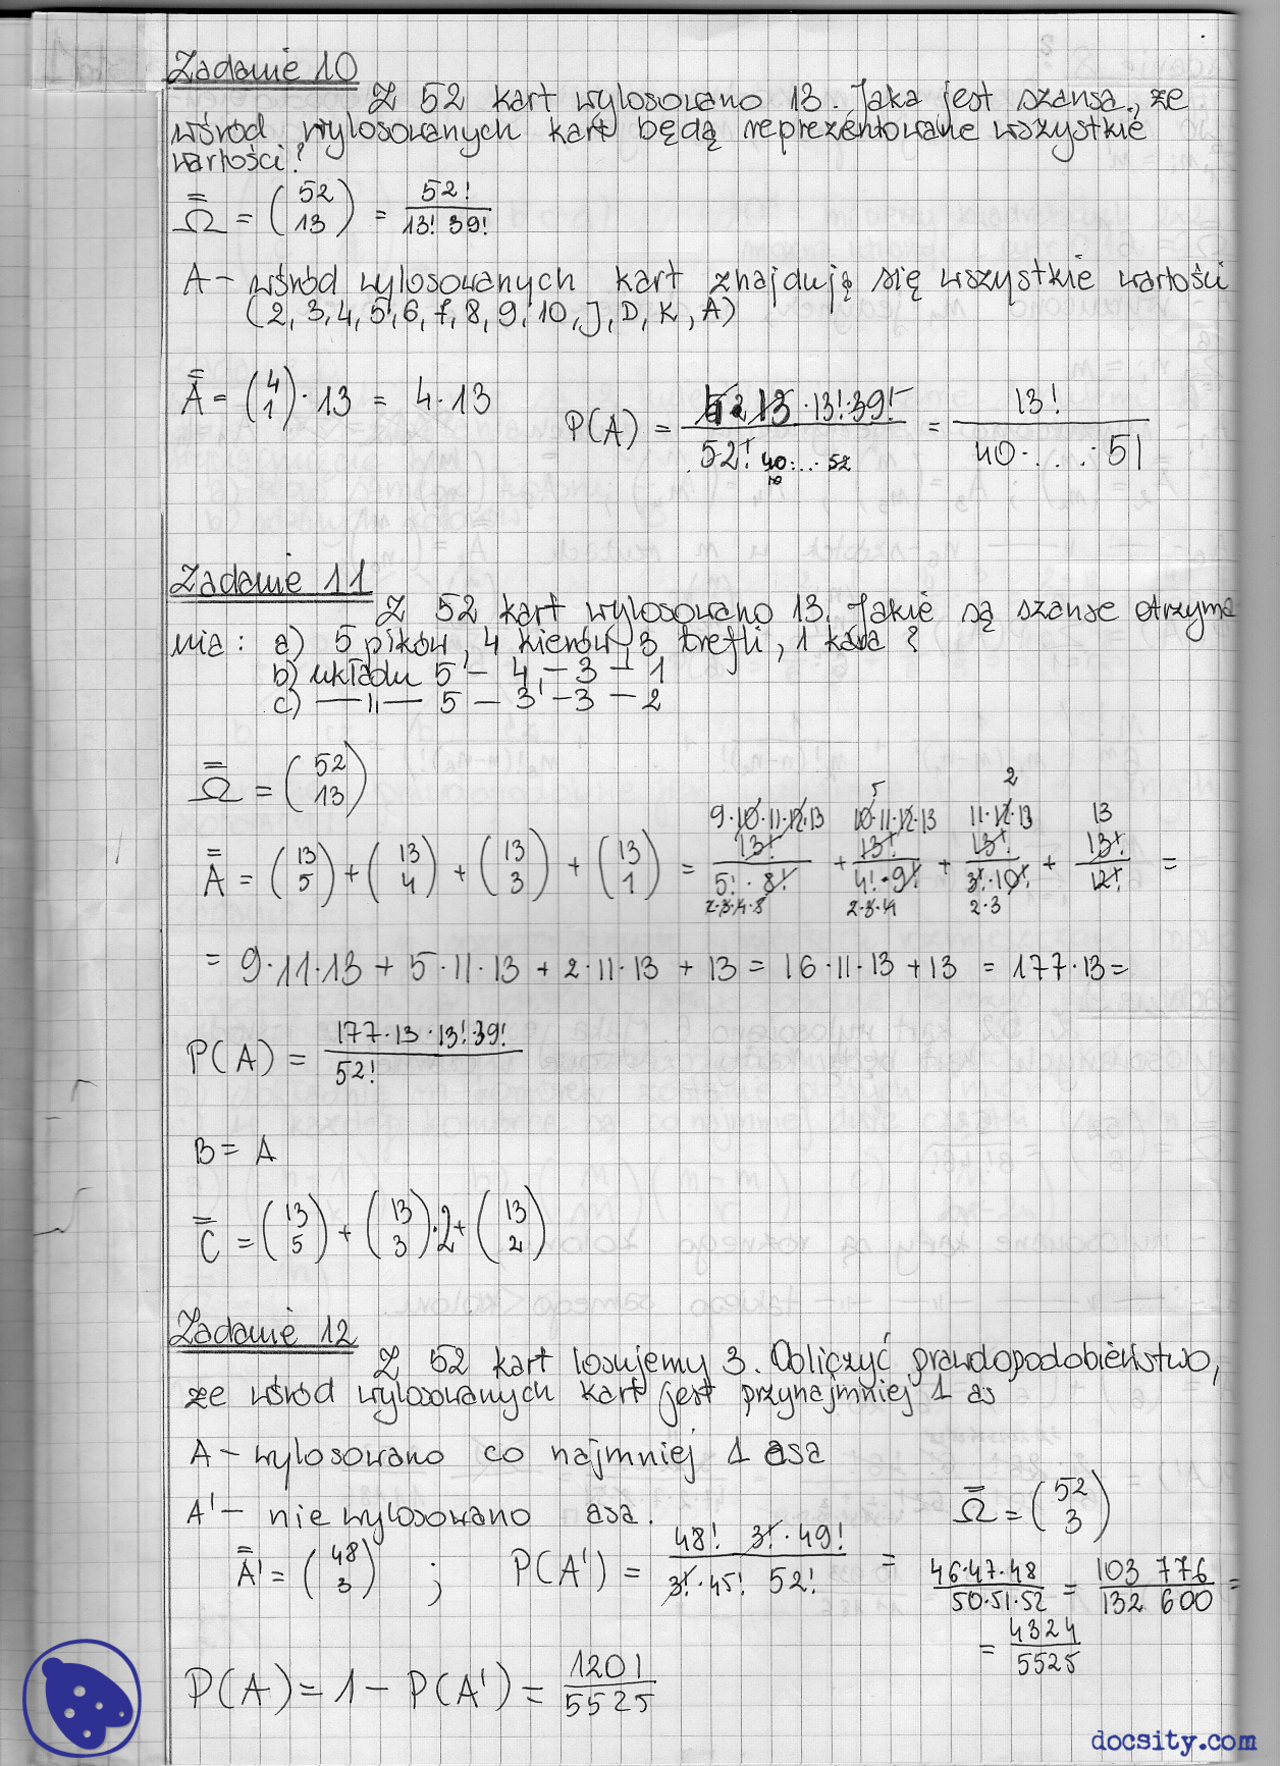 Zadanie 10
Z 52 kart wylosowano 13. Jaka jest szansa, że
wśród wylosowanych kart będą reprezentowane wszystkie
wartości?
Ω̿ = (52 13) = 52! / 13! 39!
A – wśród wylosowanych kart znajdują się wszystkie wartości
(2, 3, 4, 5, 6, 7, 8, 9, 10, J, D, K, A)
A̿ = (4 1) · 13 = 4 · 13
P(A) = 52 13 · 13! · 39! / 52! 40 · ... · 52 = 13! / 40 · ... · 51
Zadanie 11
Z 52 kart wylosowano 13. Jakie są szanse otrzyma
nia: a) 5 pików, 4 kierów, 3 trefli, 1 kara?
b) układu 5 – 4 – 3 – 1
c) —"— 5 – 3 – 3 – 2
Ω̿ = (52 13)
A̿ = (13 5) + (13 4) + (13 3) + (13 1) = 9·10·11·12·13 13! / 5! · 8! 2·3·4·5 + 5 10·11·12·13 13! / 4! · 9! 2·3·4 + 2 11·12·13 13! / 3! · 10! 2·3 + 13 13! / 12! =
= 9·11·13 + 5·11·13 + 2·11·13 + 13 = 16·11·13 + 13 = 177·13 =
P(A) = 177·13·13!·39! / 52!
B = A
C̿ = (13 5) + (13 3)·2 + (13 2)
Zadanie 12
Z 52 kart losujemy 3. Obliczyć prawdopodobieństwo,
że wśród wylosowanych kart jest przynajmniej 1 as
A – wylosowano co najmniej 1 asa
A' – nie wylosowano asa.
Ω̿ = (52 3)
A̿' = (48 3) ; P(A') = 48! 3! · 49! / 3! · 45! 52! = 46·47·48 / 50·51·52 = 103 776 / 132 600 =
= 4324 / 5525
P(A) = 1 – P(A') = 1201 / 5525
docsity.com